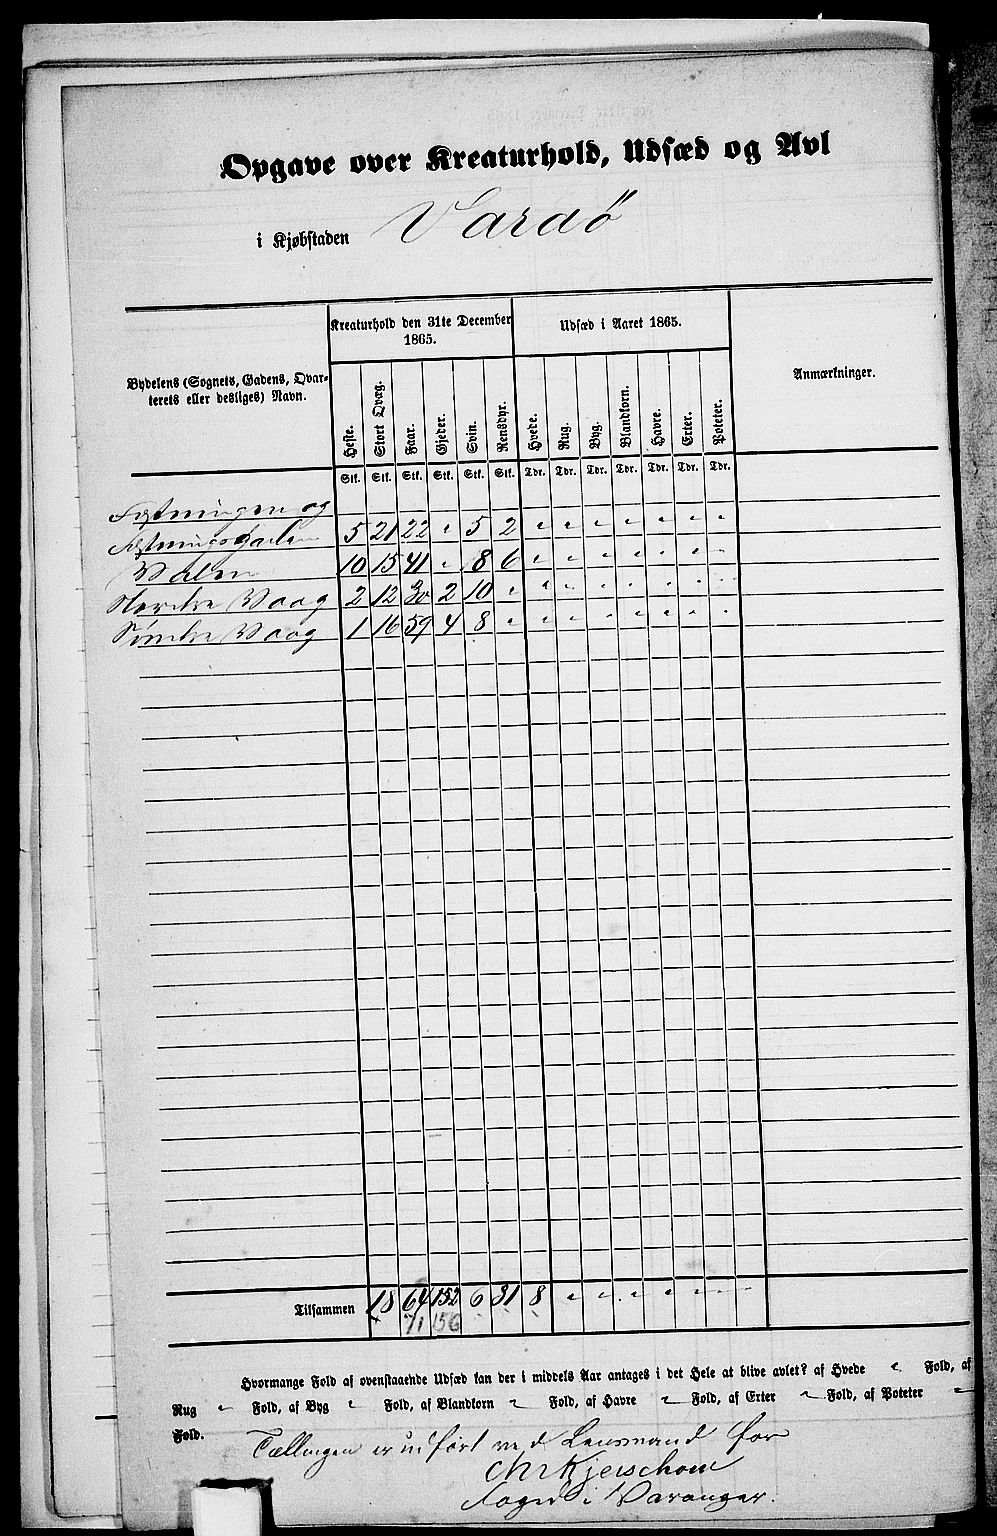 Opgave over Kreaturhold, Udsæd og Avl
i Kjøbstaden Vardø
Bydelens (Sognets, Gadens, Qvarterets eller desliges) Navn.
Kreaturhold den 31te December 1865.
Udsæd i Aaret 1865.
Anmærkninger.
Heste. Stort Qvæg. Faar. Gjeder. Svin. Rensdyr. Hvede. Rug. Byg. Blandkorn. Havre. Erter. Poteter.
Stk. Stk. Stk. Stk. Stk. Stk. Tdr. Tdr. Tdr. Tdr. Tdr. Tdr. Tdr.
Fæstningen og
Fæstningsgaden 5 21 22 " 5 2 " " " " " " "
Valen 10 15 41 " 8 6 " " " " " " "
Nordre Vaag 2 12 30 2 10 " " " " " " " "
Søndre Vaag 1 16 59 4 8 " " " " " " " "
Tilsammen 18 64 152 6 31 8 " " " " " " "
156
Hvormange Fold af ovenstaaende Udsæd kan der i middels Aar antages i det Hele at blive avlet? af Hvede " Fold, af
Rug " Fold, af Byg " Fold, af Blandkorn " Fold, af Havre " Fold, af Erter " Fold, af Poteter "
Fold.
Tællingen er udført ved Lensmand for
Kjerschow
Foged i Varanger.